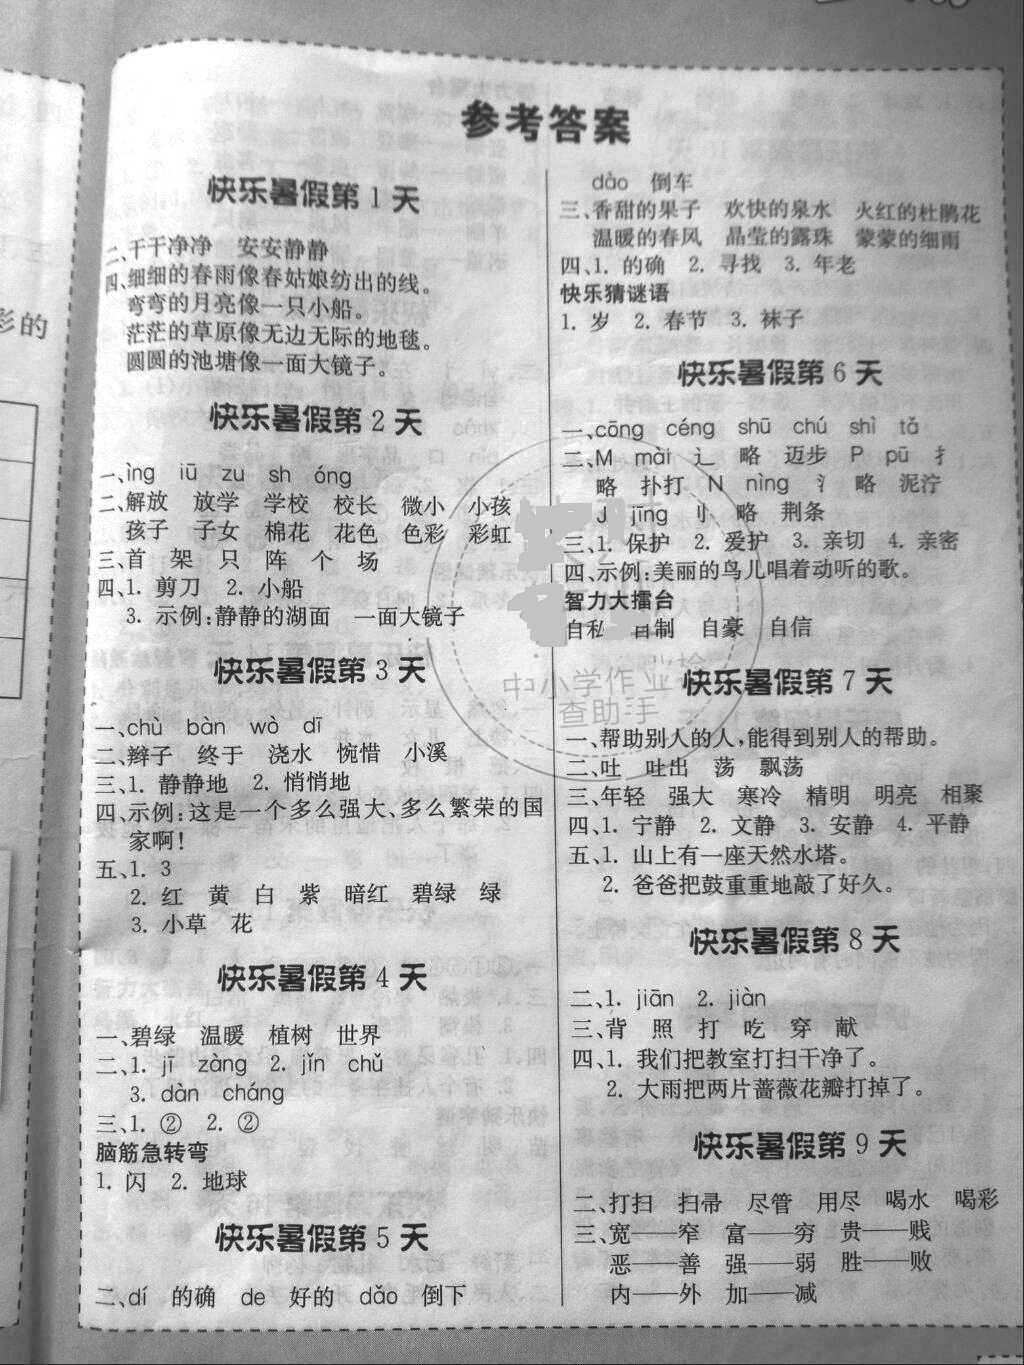 参考答案
快乐暑假第1天
二、干干净净 安安静静
四、细细的春雨像春姑娘纺出的线。
弯弯的月亮像一只小船。
茫茫的草原像无边无际的地毯。
圆圆的池塘像一面大镜子。
快乐暑假第2天
一、ìng iū zu sh óng
二、解放 放学 学校 校长 微小 小孩
孩子 子女 棉花 花色 色彩 彩虹
三、首 架 只 阵 个 场
四、1. 剪刀 2. 小船
3. 示例:静静的湖面 一面大镜子
快乐暑假第3天
一、chù bàn wò dī
二、辫子 终于 浇水 惋惜 小溪
三、1. 静静地 2. 悄悄地
四、示例:这是一个多么强大、多么繁荣的国
家啊!
五、1. 3
2. 红 黄 白 紫 暗红 碧绿 绿
3. 小草 花
快乐暑假第4天
一、碧绿 温暖 植树 世界
二、1. jī zàng 2. jǐn chǔ
3. dàn cháng
三、1. ② 2. ②
脑筋急转弯
1. 闪 2. 地球
快乐暑假第5天
二、dí 的确 de 好的 dǎo 倒下
dào 倒车
三、香甜的果子 欢快的泉水 火红的杜鹃花
温暖的春风 晶莹的露珠 蒙蒙的细雨
四、1. 的确 2. 寻找 3. 年老
快乐猜谜语
1. 岁 2. 春节 3. 袜子
快乐暑假第6天
一、cōng céng shū chú shì tǎ
二、M mài 辶 略 迈步 P pū 扌
略 扑打 N nìng 氵 略 泥泞
J jīng 刂 略 荆条
三、1. 保护 2. 爱护 3. 亲切 4. 亲密
四、示例:美丽的鸟儿唱着动听的歌。
智力大擂台
自私 自制 自豪 自信
中小学作业检
查助手
快乐暑假第7天
一、帮助别人的人,能得到别人的帮助。
二、吐 吐出 荡 飘荡
三、年轻 强大 寒冷 精明 明亮 相聚
四、1. 宁静 2. 文静 3. 安静 4. 平静
五、1. 山上有一座天然水塔。
2. 爸爸把鼓重重地敲了好久。
快乐暑假第8天
二、1. jiān 2. jiàn
三、背 照 打 吃 穿 献
四、1. 我们把教室打扫干净了。
2. 大雨把两片蔷薇花瓣打掉了。
快乐暑假第9天
二、打扫 扫帚 尽管 用尽 喝水 喝彩
三、宽——窄 富——穷 贵——贱
恶——善 强——弱 胜——败
内——外 加——减